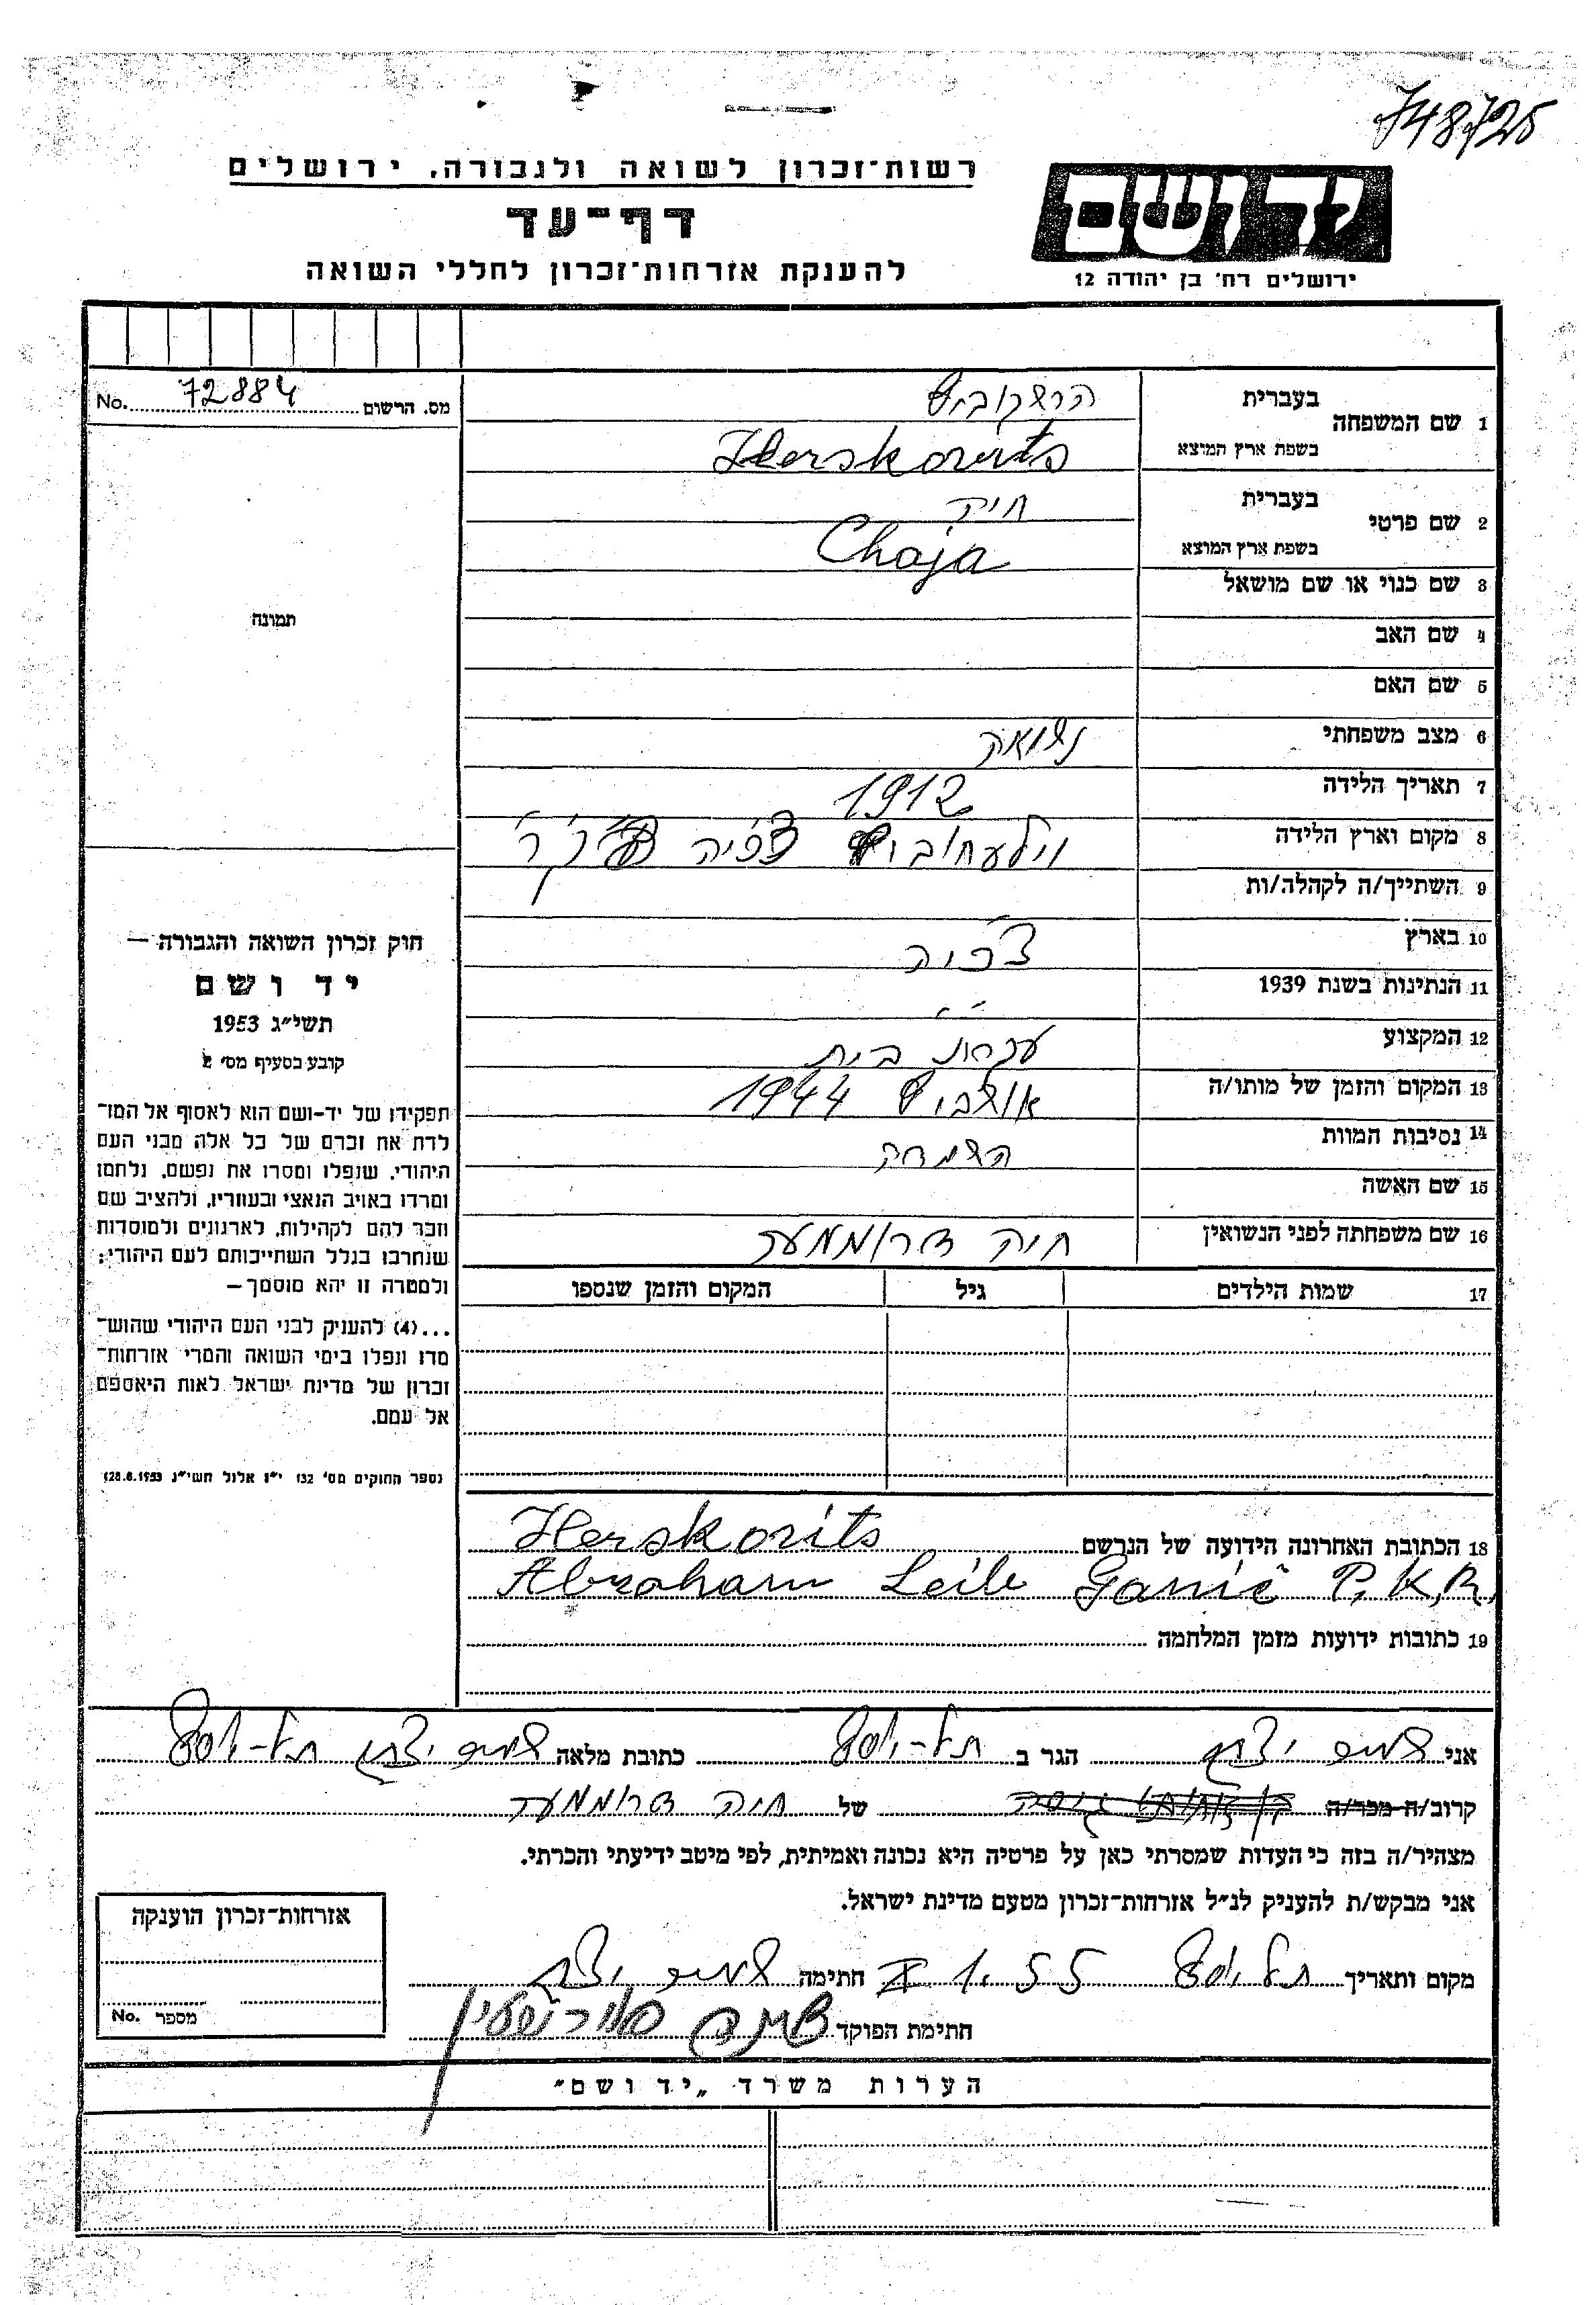 748725
יד ושם
ירושלים רח' בן יהודה 12
רשות־זכרון לשואה ולגבורה, ירושלים
דף־עד
להענקת אזרחות־זכרון לחללי השואה
מס. הרשום 72884 No.
תמונה
1 שם המשפחה בעברית הרשקוביץ
בשפת ארץ המוצא Herskovits
2 שם פרטי בעברית חיה
בשפת ארץ המוצא Chaja
3 שם כנוי או שם מושאל
4 שם האב
5 שם האם
6 מצב משפחתי נשואה
7 תאריך הלידה 1912
8 מקום וארץ הלידה צ'כיה
9 השתייך/ה לקהלה/ות
10 בארץ צ'כיה
11 הנתינות בשנת 1939 "
12 המקצוע עקרת בית
13 המקום והזמן של מותו/ה אושביץ 1944
14 נסיבות המוות השמדה
15 שם האשה
16 שם משפחתה לפני הנשואין חיה
17 שמות הילדים גיל המקום והזמן שנספו
18 הכתובת האחרונה הידועה של הנרשם Herskovits
Abraham Leib Ganič P.K.R.
19 כתובות ידועות מזמן המלחמה
חוק זכרון השואה והגבורה —
יד ושם
תשי"ג 1953
קובע בסעיף מס' 2
תפקידו של יד-ושם הוא לאסוף אל המו־
לדת את זכרם של כל אלה מבני העם
היהודי, שנפלו ומסרו את נפשם, נלחמו
ומרדו באויב הנאצי ובעוזריו, ולהציב שם
וזכר להם לקהילות, לארגונים ולמוסדות
שנחרבו בגלל השתייכותם לעם היהודי;
ולמטרה זו יהא מוסמך —
...(4) להעניק לבני העם היהודי שהוש־
מדו ונפלו בימי השואה והמרי אזרחות־
זכרון של מדינת ישראל לאות היאספם
אל עמם.
נספר החוקים מס' 132 י"ז אלול תשי"ג 28.8.1953)
אני יצחק הגר ב תל-יוסף כתובת מלאה יצחק תל-יוסף
קרוב/ה מכר/ה של חיה
מצהיר/ה בזה כי העדות שמסרתי כאן על פרטיה היא נכונה ואמיתית, לפי מיטב ידיעתי והכרתי.
אני מבקש/ת להעניק לנ"ל אזרחות־זכרון מטעם מדינת ישראל.
מקום ותאריך תל יוסף 1.55 חתימה יצחק
חתימת הפוקד
אזרחות־זכרון הוענקה
מספר No.
הערות משרד „יד ושם"